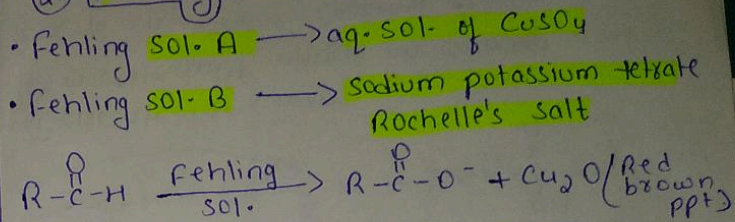 • Fehling sol. A → aq. sol. of CuSO4
• Fehling sol. B → sodium potassium tetrate
Rochelle's salt
R-C(=O)-H —Fehling sol.→ R-C(=O)-O⁻ + Cu2O (Red brown ppt)